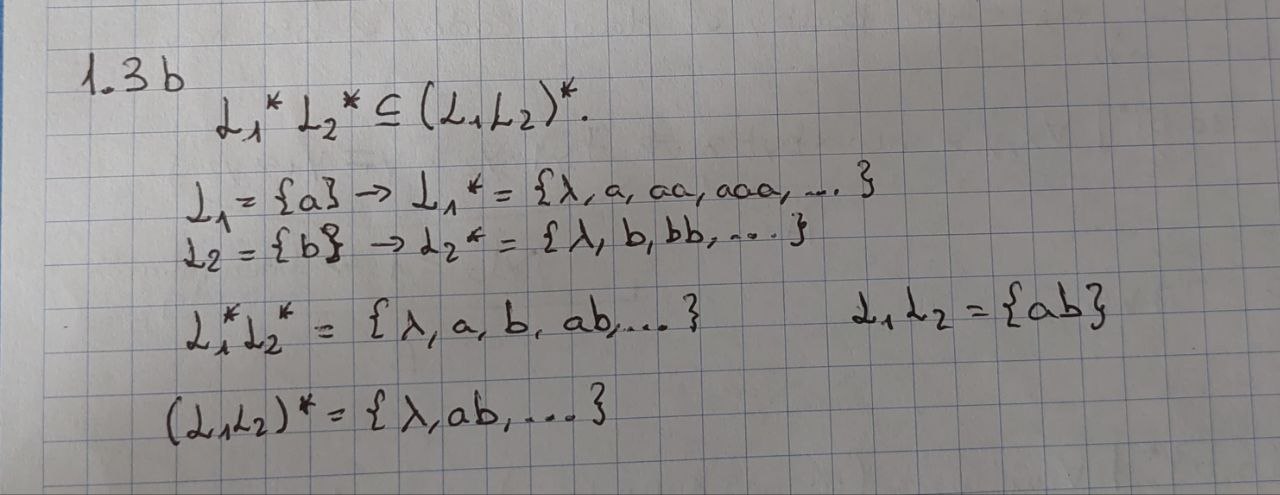 1.3 b
L₁* L₂* ⊆ (L₁L₂)*.
L₁ = {a} → L₁* = {λ, a, aa, aaa, ... }
L₂ = {b} → L₂* = {λ, b, bb, ... }
L₁*L₂* = {λ, a, b, ab, ... } L₁L₂ = {ab}
(L₁L₂)* = {λ, ab, .... }